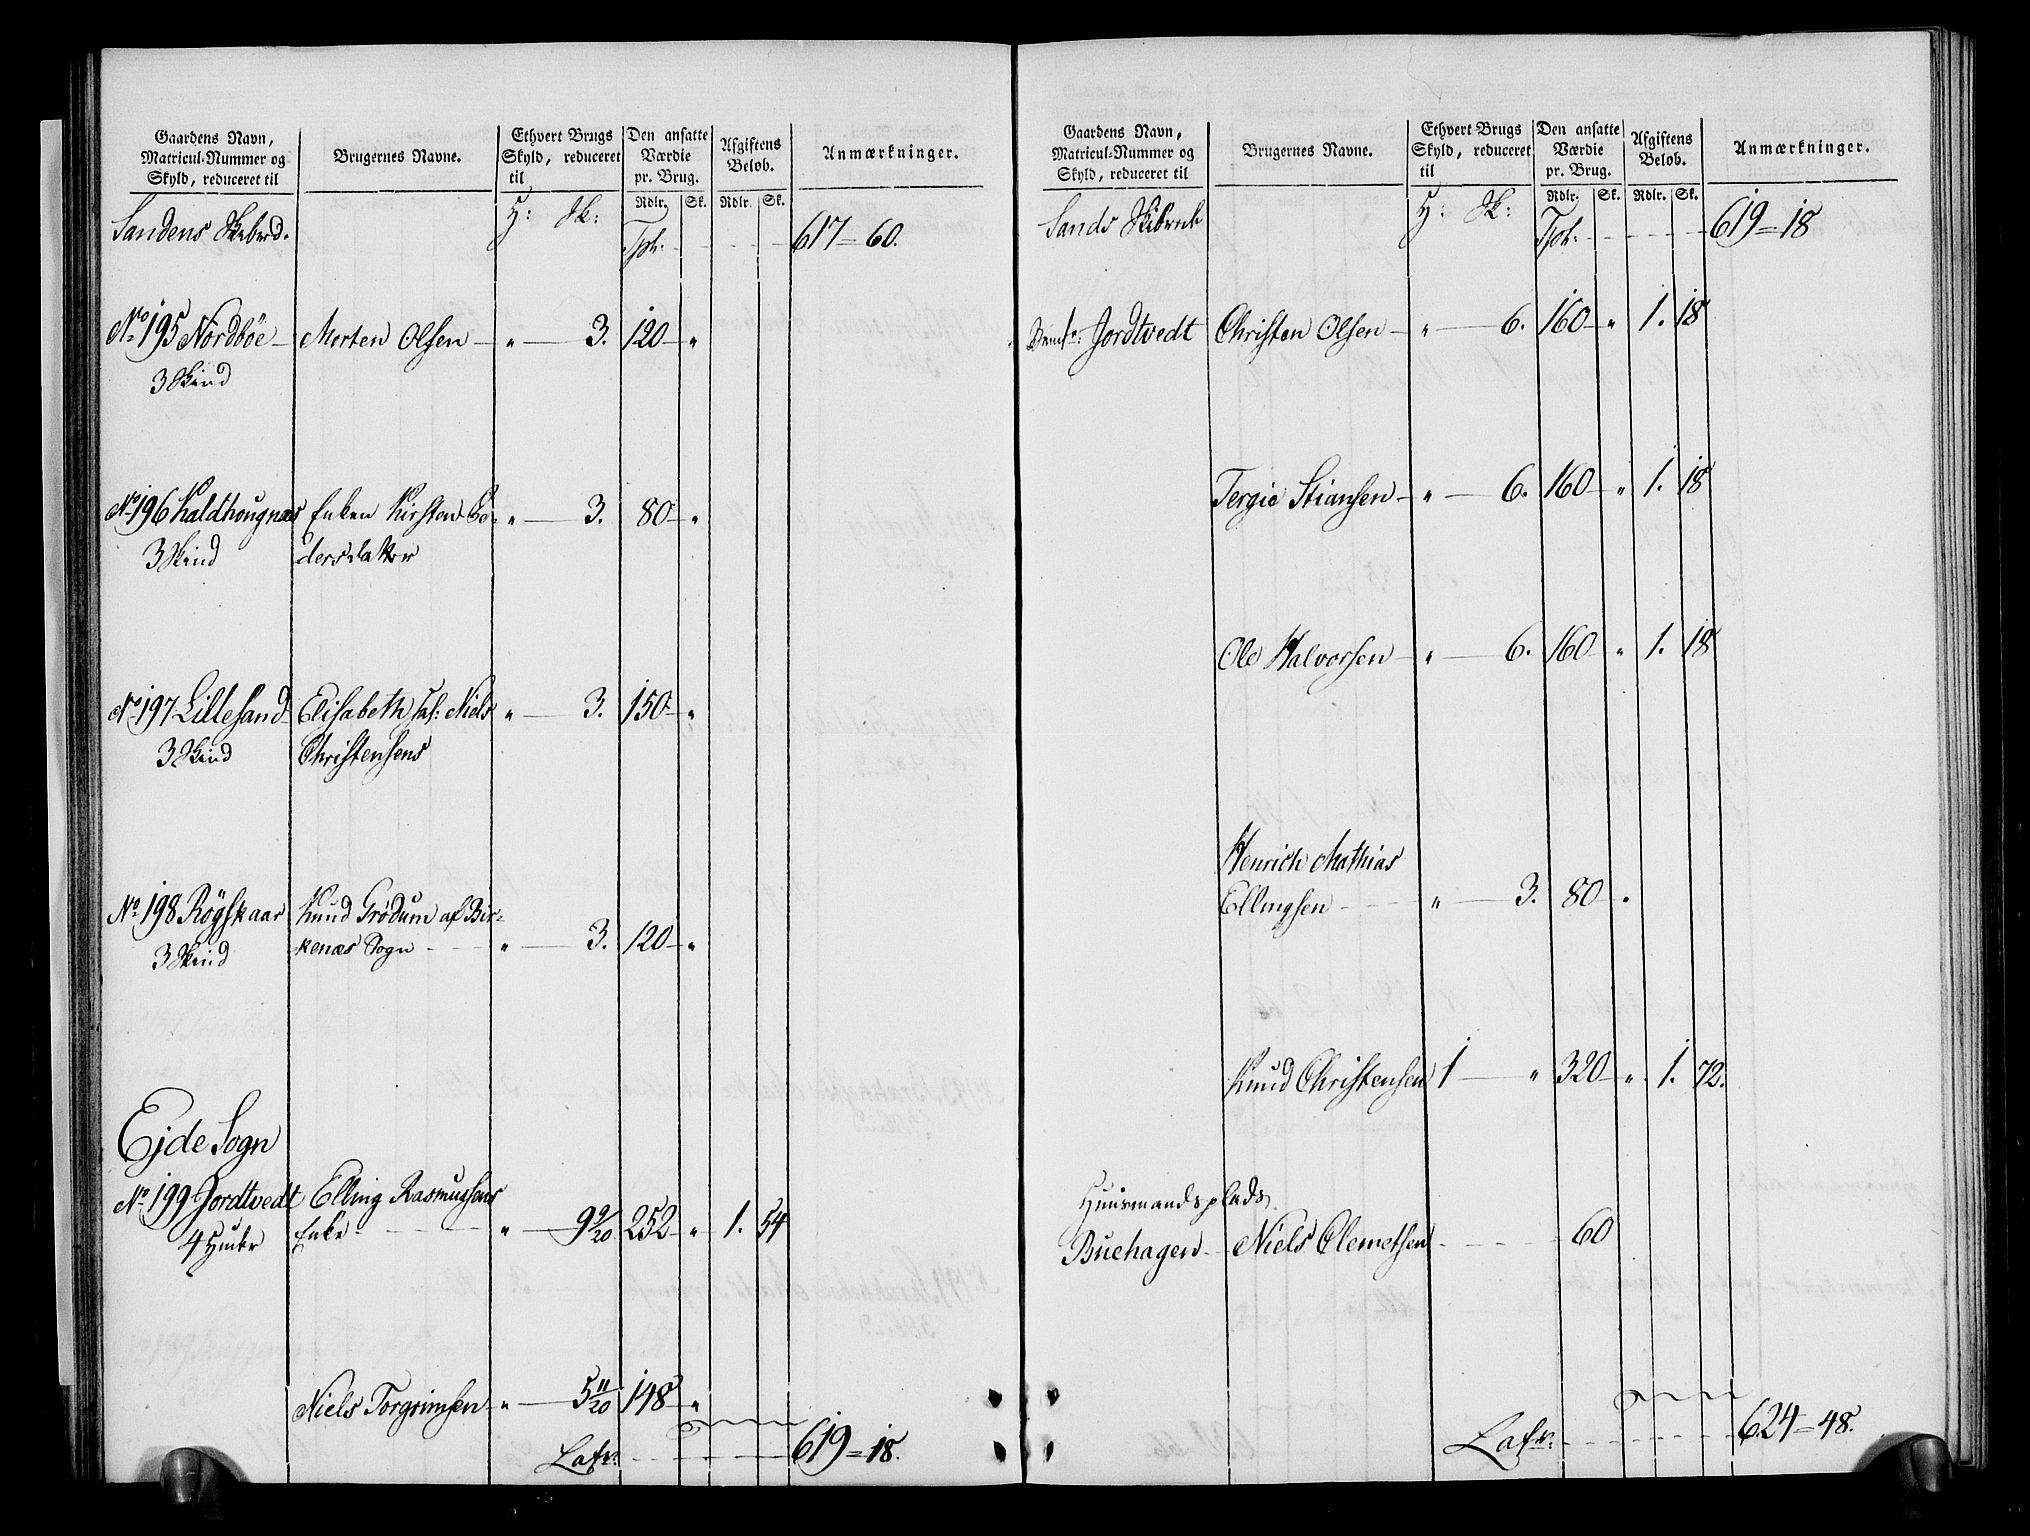 Gaardens Navn, Matricul-Nummer og Skyld, reduceret til | Brugernes Navne. | Ethvert Brugs Skyld, reduceret til | Den ansatte Værdie pr. Brug. | Afgiftens Beløb. | Anmærkninger.
H: Sk: | Rdlr. | Sk. | Rdlr. | Sk.
Sandens Skibrd. Tpt. 617=60.
No 195 Nordbøe Morten Olsen „ 3. 120 „
3 Skind
No 196 Kaldhougnæs Enken Kirsten Pe- „ 3. 80 „
3 Skind dersdatter
No 197 Lillesand Elisabeth sal: Niels „ 3. 150 „
3 Skind Christensens
No 198 Røgskaar Knud Grødum af Bir-
3 Skind kenæs Sogn „ 3. 120 „
Ejde Sogn
No 199 Jordtvedt Elling Rasmussens
4 Huder Enke „ 9 9/20 252 „ 1. 54
Niels Torgrimsen „ 5 11/20 148 „
Later 619=18.
Gaardens Navn, Matricul-Nummer og Skyld, reduceret til | Brugernes Navne. | Ethvert Brugs Skyld, reduceret til | Den ansatte Værdie pr. Brug. | Afgiftens Beløb. | Anmærkninger.
H: Sk: | Rdlr. | Sk. | Rdlr. | Sk.
Sands Skibrede Tpt. 619=18
Jordtvedt Christen Olsen „ 6. 160 „ 1. 18
Tergie Stiansen „ 6. 160 „ 1. 18
Ole Halvorsen „ 6. 160 „ 1. 18
Henrich Mathias
Ellingsen „ 3. 80 „
Knud Christensen 1 „ 320 „ 1. 72.
Huusmandsplads
Buehagen Niels Clemetsen 60
Later 624=48.